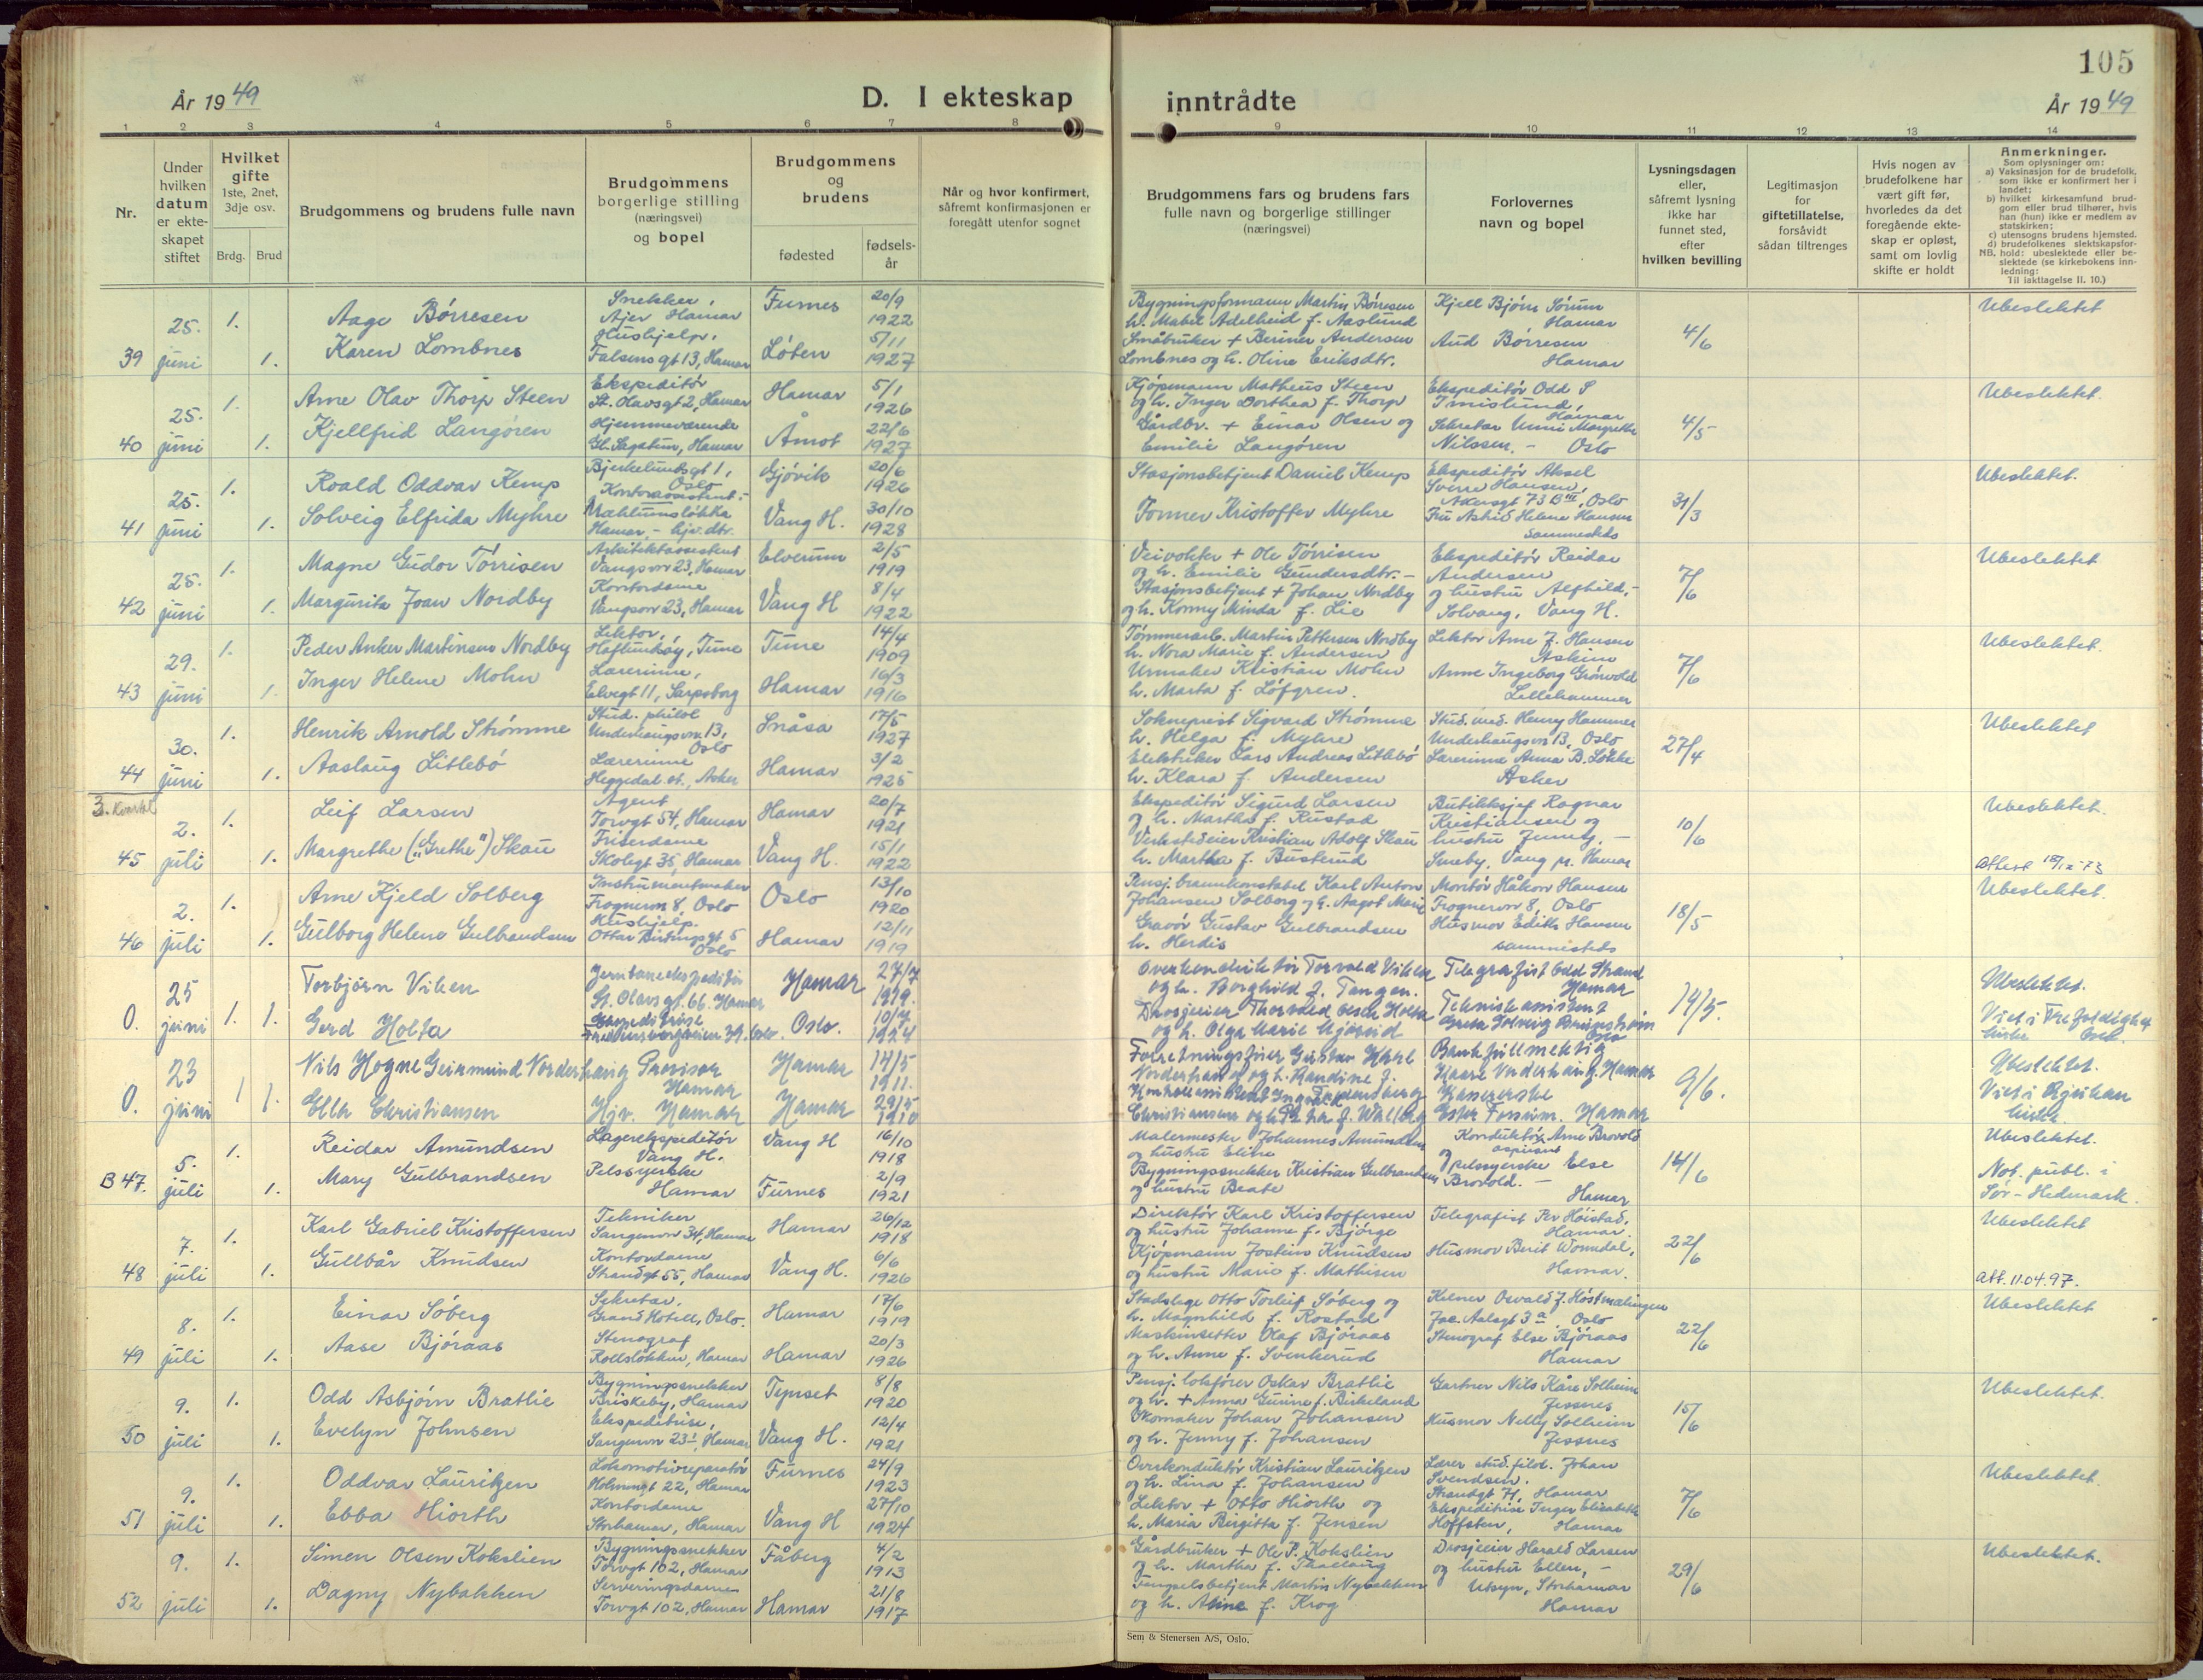 105
År 1949
D. I ekteskap inntrådte
År 1949
1 2 3 4 5 6 7 8 9 10 11 12 13 14
Nr.
Under hvilken datum er ekte-skapet stiftet
Hvilket gifte
1ste, 2net, 3dje osv.
Brdg. Brud
Brudgommens og brudens fulle navn
Brudgommens borgerlige stilling (næringsvei) og bopel
Brudgommens og brudens
fødested
fødsels-år
Når og hvor konfirmert, såfremt konfirmasjonen er foregått utenfor sognet
Brudgommens fars og brudens fars fulle navn og borgerlige stillinger (næringsvei)
Forlovernes navn og bopel
Lysningsdagen eller, såfremt lysning ikke har funnet sted, efter hvilken bevilling
Legitimasjon for giftetillatelse, forsåvidt sådan tiltrenges
Hvis nogen av brudefolkene har vært gift før, hvorledes da det foregående ekte-skap er opløst, samt om lovlig skifte er holdt
Anmerkninger.
Som oplysninger om:
a) Vaksinasjon for de brudefolk, som ikke er konfirmert her i landet;
b) hvilket kirkesamfund brud-gom eller brud tilhører, hvis han (hun) ikke er medlem av statskirken;
c) utensogns brudens hjemsted.
d) brudefolkenes slektskapsfor-hold: ubeslektede eller be-slektede (se kirkebokens inn-ledning:
NB.
Til iakttagelse II. 10.)
39 25. juni 1. Aage Børresen Snekker, Ajer Hamar Furnes 20/9 1922
1. Karen Lombnes Hushjelp, Falsensgt 13, Hamar Løten 5/11 1927
Bygningsformann Martin Børresen h. Mabel Adelheid f. Aaslund
Småbruker + Beriner Andersen Lombnes og h. Oline Eriksdtr.
Kjell Bjørn Sørum Hamar
Aud Børresen Hamar
4/6 Ubeslektet
40 25. juni 1. Arne Olav Thorp Steen Ekspeditør St. Olavsgt 2, Hamar Hamar 5/1 1926
1. Kjellfrid Langøren Hjemmeværende Gl. Sagatun, Hamar Åmot 22/6 1927
Kjøpmann Matheus Steen og h. Inger Dorthea f. Thorp
Gårdbr. + Einar Olsen og Emilie Langøren
Ekspeditør Odd S Imislund, Hamar
Sekretær Unni Margrethe Nilssen, - Oslo
4/5 Ubeslektet.
41 25. juni 1. Roald Oddvar Kemp Bjerkelundsgt 1, Oslo Kontorassistent. - Gjøvik 20/6 1926
1. Solveig Elfrida Myhre Mæhlumsløkka Hamar, - hjv. dtr. Vang H. 30/10 1928
Stasjonsbetjent Daniel Kemp
Former Kristoffer Myhre
Ekspeditør Aksel Sverre Hansen, Akersgt 73 B III, Oslo
Fru Astrid Helene Hansen sammesteds
31/3 Ubeslektet.
42 25. juni 1. Magne Gudor Tørrisen Arkitektassistent Vangsvn 23, Hamar Elverum 2/5 1919
1. Margurita Joan Nordby Kontordame Vangsvn 23, Hamar Vang H 8/4 1922
Veivokter + Ole Tørrisen og h. Emilie Gundersdtr. -
Stasjonsbetjent + Johan Nordby og h. Konny Minda f. Lie
Ekspeditør Reidar Andersen og hustru Alfhild, - Solvang, Vang H.
7/6 Ubeslektet
43 29. juni 1. Peder Anker Martinsen Nordby Lektor, Hafslundsøy, Tune Tune 14/4 1909
1. Inger Helene Mohn Lærerinne, Elvegt 11, Sarpsborg Hamar 16/3 1916
Tømmerarb. Martin Pettersen Nordby h. Nora Marie f. Andersen
Urmaker Kristian Mohn h. Marta f. Löfgren.
Lektor Arne J. Hansen Askim
Anne Ingeborg Grønvold Lillehammer
7/6 Ubeslektet.
44 30. juni 1. Henrik Arnold Strømme Stud. philol Underhaugsvn 13, Oslo Snåsa 17/5 1927
1. Aaslaug Litlebø Lærerinne Heggedal st., Asker Hamar 3/2 1925
Sokneprest Sigvard Strømme h. Helga f. Myhre
Elektriker Lars Andreas Litlebø h. Klara f. Andersen
Stud. med. Henry Hammer Underhaugsvn 13, Oslo
Lærerinne Anna B. Løkke Asker
27/4 Ubeslektet
3. kvartal
45 2. juli 1. Leif Larsen Agent Torvgt 54, Hamar Hamar 20/7 1921
1. Margrethe ("Grethe") Skau Friserdame Skolegt 35, Hamar Vang H. 15/1 1922
Ekspeditør Sigurd Larsen og h. Martha f. Rustad
Verkstedeier Kristian Adolf Skau h. Martha f. Busterud
Butikksjef Ragnar Kristiansen og hustru Jenny, - Smeby, Vang pr. Hamar
10/6 Ubeslektet.
46 2. juli 1. Arne Kjeld Solberg Instrumentmaker Frognervn 8, Oslo Oslo 13/10 1920
1. Gulborg Helene Gulbrandsen Hushjelp. Oslo Hamar 12/11 1919
Pensj. brannkonstabel Karl Anton Johansen Solberg og h. Aagot Marie
Gravør Gustav Gulbrandsen h. Herdis
Montør Håkon Hansen Frognervn 8, Oslo
Husmor Edith Hansen sammesteds
18/5 Ubeslektet.
0. 25 juni 1. Torbjörn Viken Jernbaneekspeditør St. Olavsgt. 66. Hamar Hamar 27/7 1919.
1. Gerd Holta Ekspeditrise Oslo. 10/7 1924
Overkonduktør Torvald Viken og h. Borghild f. Tangen.
Drosjeeier Thorvald Holta og h. Olga Marie
Telegrafist Odd Strand Hamar
Teknisk assistent Oslo
14/5. Ubeslektet. Viet i Trefoldighet kirke Oslo.
0. 23 juni 1 Nils Hogne Geirmund Norderhaug Provisor Hamar Hamar 14/5 1911.
1. Ella Christiansen Hjv. Hamar Hamar 29/5 1910
Forretningsfører Gustav Norderhaug og h. Randine f.
Christiansen
Bankfullmektig Kaare Norderhaug. Hamar
Kassererske Ester Fossum. Hamar
9/6. Ubeslektet. Viet i Rjukan kirke.
B 47. 5. juli 1. Reidar Amundsen Lagerekspeditør Vang H. Vang H 16/10 1918
1. Mary Gulbrandsen Pelssyerske Hamar Furnes 2/9 1921
Malermester Johannes Amundsen og hustru Elitre
Bygningssnekker Kristian Gulbrandsen og hustru Beate
Konduktør aspirant Arne Brovold og pelssyerske Else Brovold. - Hamar
14/6 Ubeslektet. Not. publ. i Sør-Hedmark.
48 7. juli 1. Karl Gabriel Kristoffersen Tekniker Sangenvn 34, Hamar Hamar 26/12 1918
1. Gullbår Knudsen Kontordame Strandgt 55, Hamar Vang H. 6/6 1926
Direktør Karl Kristoffersen og hustru Johanne f. Bjørge
Kjøpmann Jostein Knudsen og hustru Marie f. Mathisen
Telegrafist Per Høistad, Hamar.
Husmor Berit Womdal, Hamar.
22/6 Ubeslektet
att. 11.04.97.
49 8. juli 1. Einar Søberg Sekretær, Grand Hotell, Oslo. Hamar 17/6 1919
1. Aase Bjøraas Stenograf Rollsløkken, Hamar Hamar 20/3 1926
Stadslege Otto Torleif Søberg og h. Magnhild f. Rostad
Maskinsetter Olaf Bjøraas og h. Anne f. Svenkerud
Kelner Osvald J. Høstmælingen Jac. Aalsgt 3 a, Oslo
Stenograf Else Bjøraas Hamar
22/6 Ubeslektet
50 9. juli 1. Odd Asbjørn Bratlie Bygningssnekker Briskeby, Hamar Tynset 8/8 1920
1. Evelyn Johnsen Ekspeditrise, Sangenvn 23 I, Hamar Vang H. 12/4 1921
Pensj. lokfører Oskar Bratlie og h. + Anna Gurine f. Birkeland
Skomaker Johan Johansen og h. Jenny f. Johansen
Gartner Nils Kåre Solheim Jessnes
Husmor Nelly Solheim Jessnes
15/6 Ubeslektet.
51 9. juli 1. Oddvar Lauritzen Lokomotivreparatør Holmsgt 22, Hamar Furnes 24/9 1923
1. Ebba Hiorth Kontordame Storhamar, Hamar Vang H 27/10 1924
Overkonduktør Kristian Lauritzen og h. Lina f. Johansen
Lektor + Otto Hiorth og h. Maria Birgitta f. Jensen
Lærer stud. filol. Johan Svendsen. Strandgt 71, Hamar
Ekspeditrise Inger Elisabeth Hoffsten, Hamar
7/6 Ubeslektet.
52 9. juli 1. Simen Olsen Kokslien Bygningssnekker Torvgt 102, Hamar Fåberg 4/2 1913
1. Dagny Nybakken Serveringsdame Torvgt 102, Hamar Hamar 21/8 1917
Gårdbruker + Ole P. Kokslien og h. Martha f.
Fengselsbetjent Martin Nybakken og h. Anne f. Krog
Drosjeeier Harald Larsen og hustru Ellen, - Utsyn, Storhamar Hamar
29/6 Ubeslektet.
Sem & Stenersen A/S, Oslo.